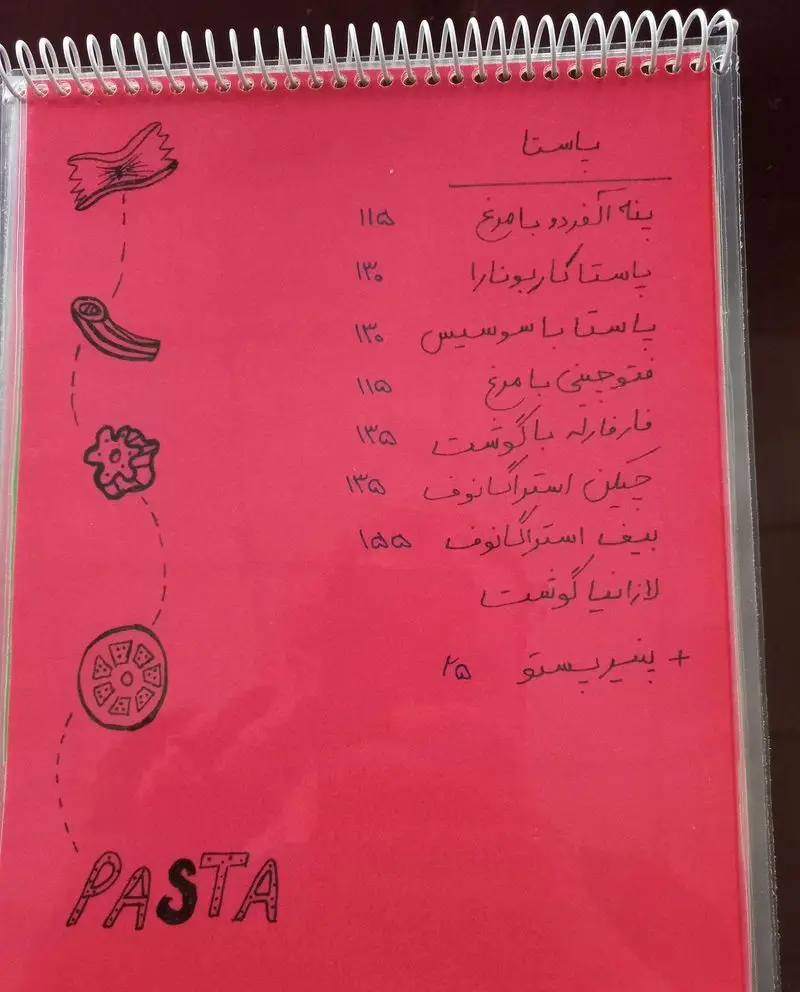 پاستا
پنه آلفردو با مرغ ۱۱۵
پاستا کاربونارا ۱۳۰
پاستا با سوسیس ۱۳۰
فتوچینی با مرغ ۱۱۵
فارفارله با گوشت ۱۳۵
چیکن استراگانوف ۱۳۵
بیف استراگانوف ۱۵۵
لازانیا گوشت
+ پنیر پستو ۲۵
PASTA